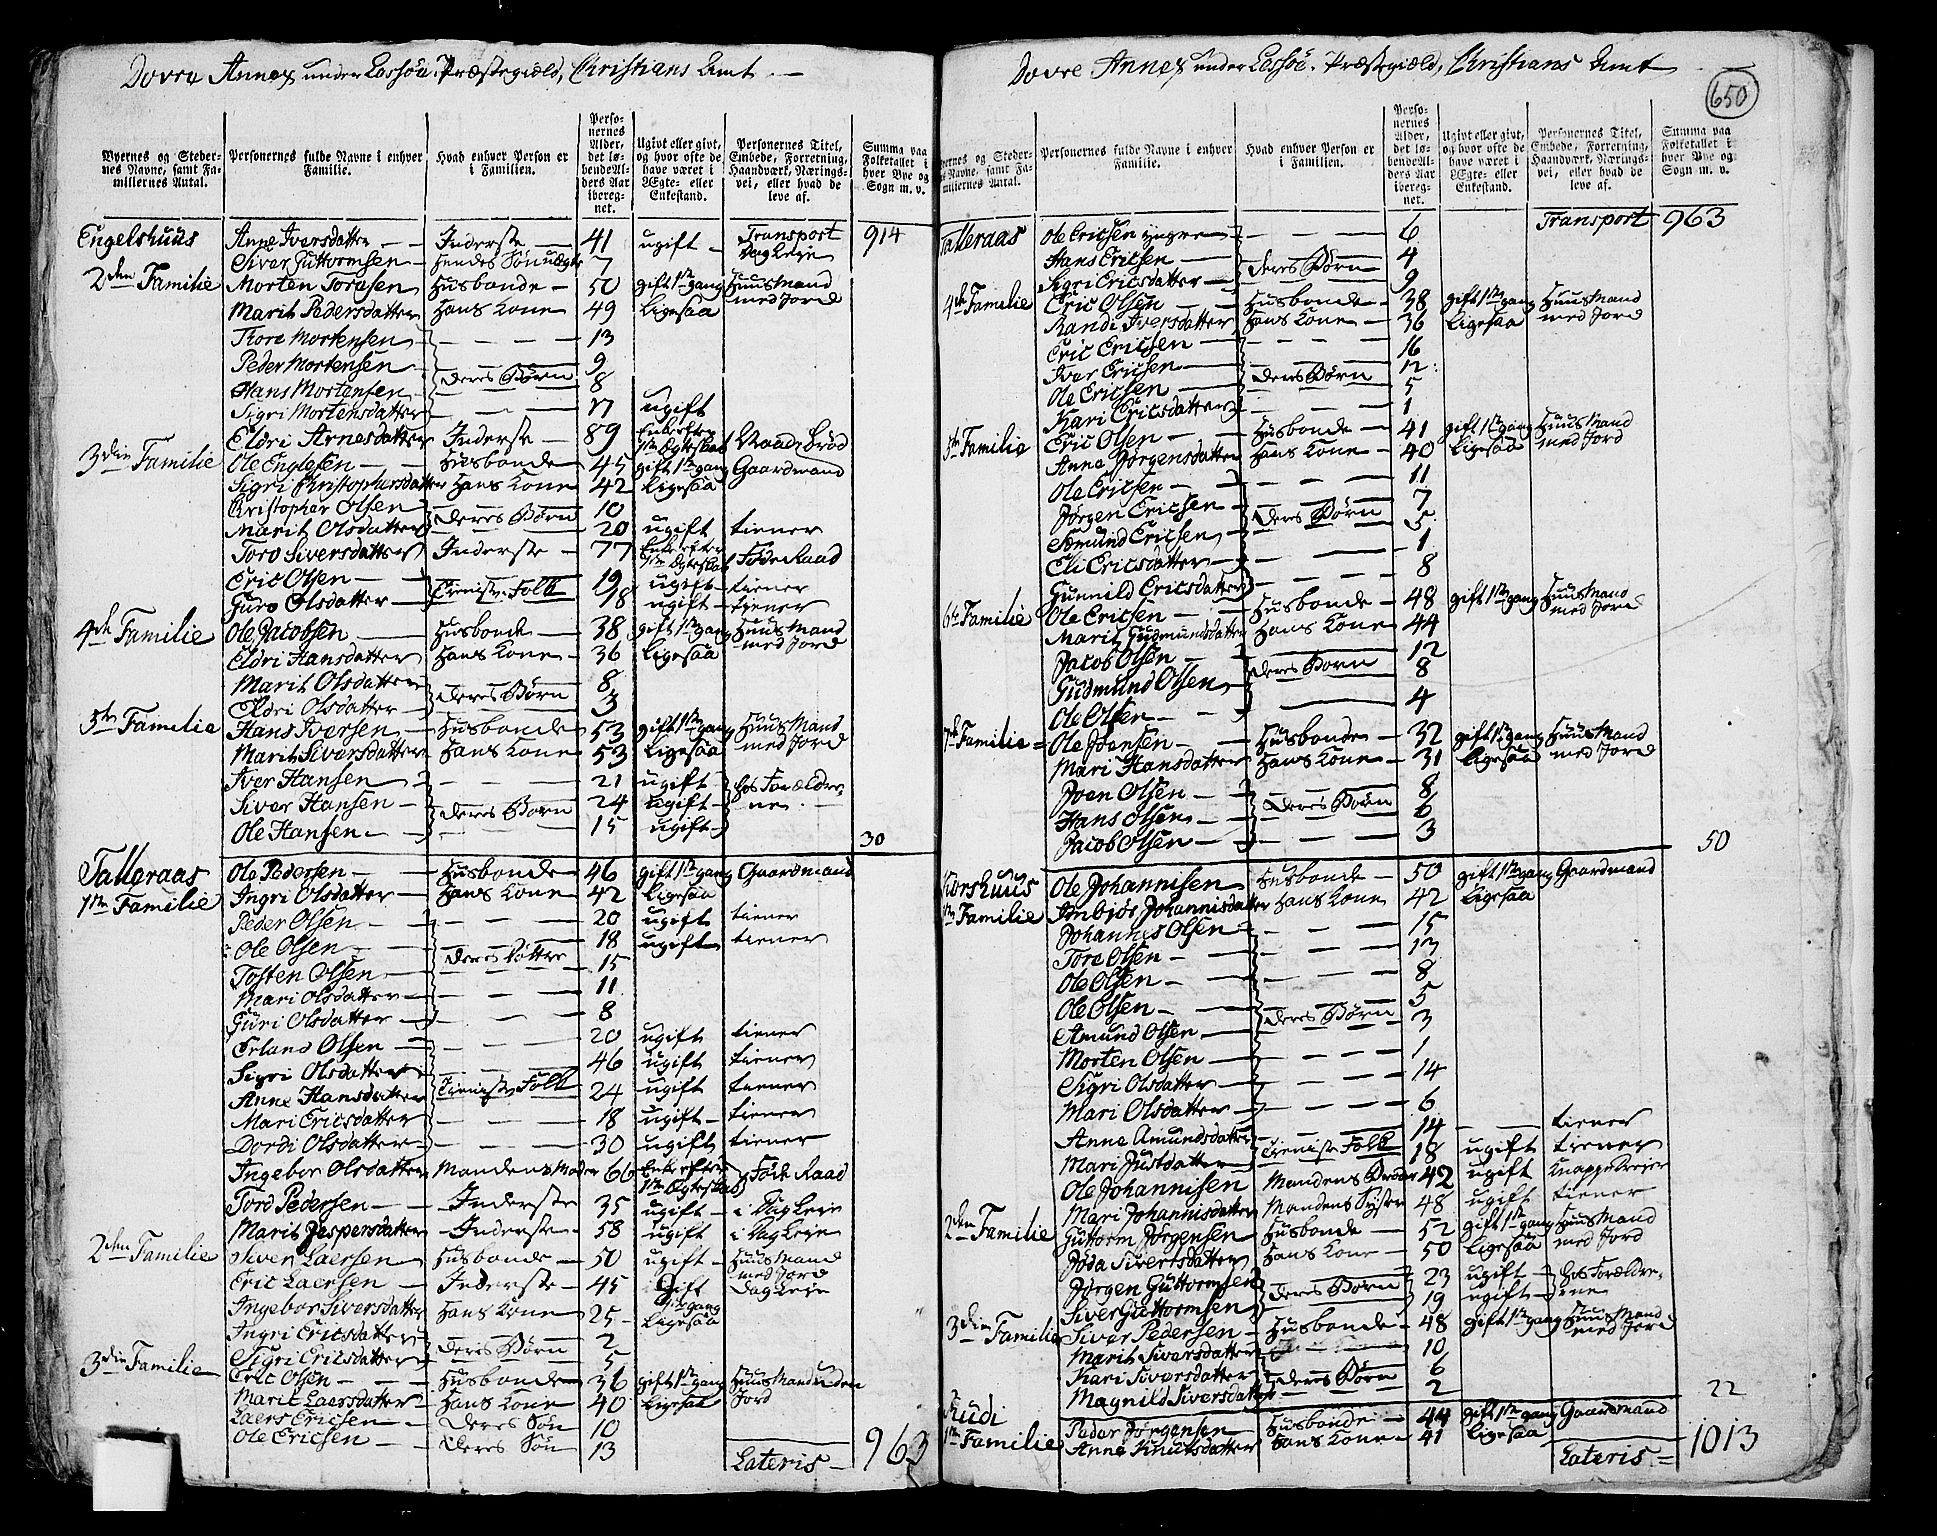 Dovre Annex under Lessøe Præstegiæld, Christians Amt
Byernes og Stedernes Navne, samt Familiernes Antal.
Personernes fulde Navne i enhver Familie.
Hvad enhver Person er i Familien.
Personernes Alder, det løbendeAlders Aar iberegnet.
Ugivt eller givt, og hvor ofte de have været i Ægte- eller Enkestand.
Personernes Titel, Embede, Forretning, Haandværk, Næringsvei, eller hvad de leve af.
Summa paa Folketallet i hver Bye og Sogn m. v.
Engelshuus Anne Iversdatter Inderste 41 ugift Transport 914
Siver Guttormsen hendes Søn uægte 7 Dagleje
2den Familie Morten Toresen Husbonde 50 gift 1ste gang Huusmand med Jord
Marit Pedersdatter Hans Kone 49 Ligesaa
Thore Mortensen 13
Peder Mortensen 9
Hans Mortensen deres Børn 8
Sigri Mortensdatter 17 ugift
Eldri Arnesdatter Inderste 89 Enke efter 1ste Ægteskab Naade Brød
3die Familie Ole Englosen Husbonde 45 gift 1ste gang Gaardmand
Sigri Kristophersdatter Hans Kone 42 Ligesaa
Kristopher Olsen deres Børn 10
Marit Olsdatter 20 ugift tiener
Toro Siversdatter Inderste 77 Enke efter 1ste Ægteskab Føde Raad
Eric Olsen Tieniste Folk 19 ugift tiener
Guro Olsdatter 18 ugift tiener
4de Familie Ole Jacobsen Husbonde 38 gift 1ste gang Huusmand med Jord
Eldri Hansdatter Hans Kone 36 Ligesaa
Marit Olsdatter 8
Eldri Olsdatter deres Børn 3
5te Familie Hans Iversen Husbonde 53 gift 1ste gang Huus Mand med Jord
Marit Siversdatter Hans Kone 53 Ligesaa
Iver Hansen 21 ugift hos Forældrene
Siver Hansen deres Børn 24 ugift
Ole Hansen 15 ugift
30
Talleraas Ole Pedersen Husbonde 46 gift 1ste gang Gaardmand
1ste Familie Ingri Olsdatter Hans Kone 42 Ligesaa
Peder Olsen 20 ugift tiener
Ole Olsen 18 ugift tiener
Tosten Olsen 15
Mari Olsdatter 11
Guri Olsdatter 8
Erland Olsen 20 ugift tiener
Sigri Olsdatter 46 ugift tiener
Anne Hansdatter Tieniste Folk 24 ugift tiener
Mari Ericsdatter 18 ugift tiener
Dordi Olsdatter 30 ugift tiener
Ingebor Olsdatter Mandens Moder 66 Enke efter 1ste Ægteskab Føde Raad
Tord Pedersen Inderste 35 ugift i Dagleje
Marit Jespersdatter Inderste 58 ugift i Dagleje
2den Familie Siver Laersen Husbonde 50 ugift Huus Mand med Jord
Eric Laersen Inderste 45 Gift 1ste gang Dagleje
Ingebor Siversdatter Hans Kone 25 Ligesaa
Ingri Ericsdatter 2
Sigri Ericsdatter deres Børn 5
3die Familie Eric Olsen Husbonde 36 gift 1ste gang Huus Mand uden Jord
Marit Laersdatter Hans Kone 40 Ligesaa
Laers Ericsen Deres Søn 10
Ole Ericsen Deres Søn 13
Lateris 963
Dovre Annex under Lessøe Præstegiæld, Christians Amt
650
Byernes og Stedernes Navne, samt Familiernes Antal.
Personernes fulde Navne i enhver Familie.
Hvad enhver Person er i Familien.
Personernes Alder, det løbendeAlders Aar iberegnet.
Ugivt eller givt, og hvor ofte de have været i Ægte- eller Enkestand.
Personernes Titel, Embede, Forretning, Haandværk, Næringsvei, eller hvad de leve af.
Summa paa Folketallet i hver Bye og Sogn m. v.
Transport 963
Talleraas Ole Ericsen yngre 6
Hans Ericsen deres Børn 4
Sigri Ericsdatter 9
4de Familie Eric Olsen Husbonde 38 gift 1ste gang Huus Mand med Jord
Randi Iversdatter Hans Kone 36 Ligesaa
Eric Ericsen 16
Iver Ericsen 12
Ole Ericsen deres Børn 5
Kari Ericsdatter 1
5te Familie Eric Olsen Husbonde 41 gift 1ste gang Huus Mand med Jord
Anne Jørgensdatter Hans Kone 40 Ligesaa
Ole Ericsen 11
Jørgen Ericsen 7
Æmund Ericsen deres Børn 5
Eli Ericsdatter 1
Gunnild Ericsdatter 8
6te Familie Ole Ericsen Husbonde 48 gift 1ste gang Huus Mand med Jord
Marit Gudmundsdatter Hans Kone 44
Jacob Olsen 12
Gudmund Olsen deres Børn 8
Ole Olsen 4
7de Familie Ole Joensen Husbonde 32 gift 1ste gang Huus Mand med Jord
Mari Hansdatter Hans Kone 31 Ligesaa
Joen Olsen 8
Hans Olsen deres Børn 6
Jacob Olsen 3
50
Korshuus Ole Johannisen Husbonde 50 gift 1ste gang Gaardmand
1ste Familie Imbjør Johannisdatter Hans Kone 42 Ligesaa
Johannes Olsen 15
Tore Olsen 13
Ole Olsen 8
Ole Olsen 5
Amund Olsen deres Børn 3
Morten Olsen 1
Sigri Olsdatter 14
Mari Olsdatter 6
Anne Amundsdatter 14 tiener
Mari Justdatter Tieniste Folk 18 ugift tiener
Ole Johannisen Mandens Broder 42 ugift
Mari Johannisdatter Mandens Syster 48 ugift tiener
2den Familie Guttorm Jørgensen Husbonde 52 gift 1ste gang Huus Mand med Jord
Jøda Sivertsdatter Hans Kone 50 Ligesaa
Jørgen Guttormsen deres Børn 23 ugift hos Forældrene
Siver Guttormsen 19 ugift
3die Familie Siver Pedersen Husbonde 48 gift 1ste gang Huus Mand med Jord
Marit Siversdatter 10
Kari Siversdatter deres Børn 6
Magnild Siversdatter 2
22
Rudi Peder Jørgensen Husbonde 44 gift 1ste gang Gaardmand
1ste Familie Anne Knutsdatter Hans Kone 41 Ligesaa
Lateris 1013